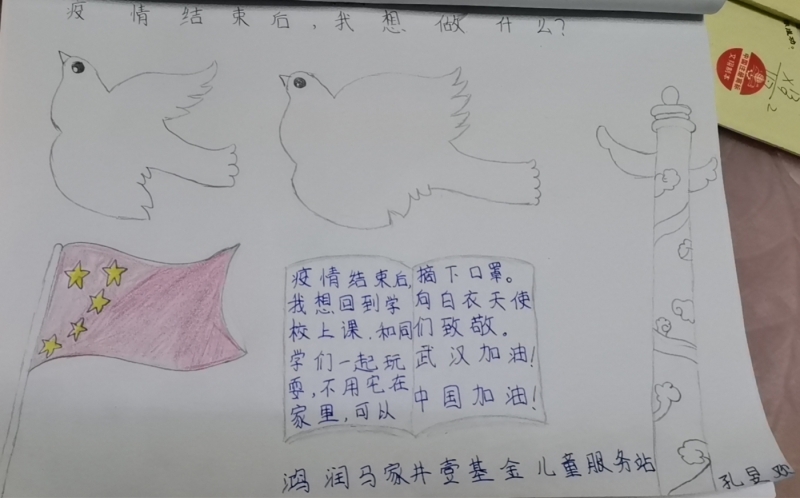 疫情结束后,我想做什么?
疫情结束后,
我想回到学
校上课,和同
学们一起玩
耍,不用宅在
家里,可以
摘下口罩。
向白衣天使
们致敬。
武汉加油!
中国加油!
鸿润马家井壹基金儿童服务站